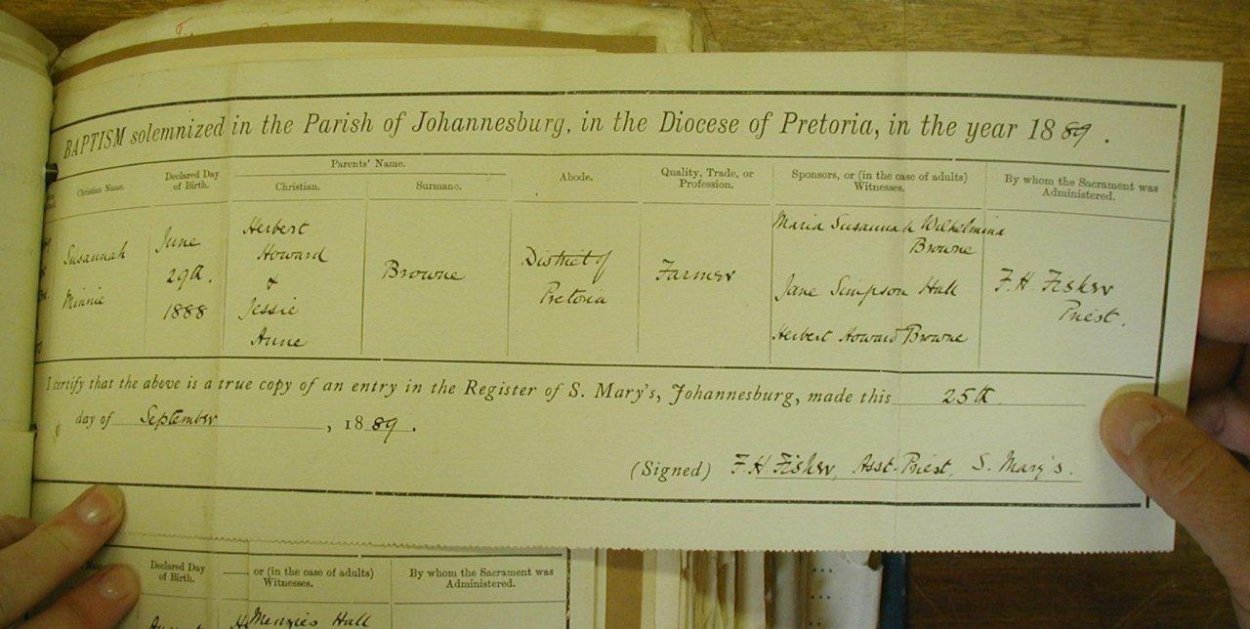 BAPTISM solemnized in the Parish of Johannesburg, in the Diocese of Pretoria, in the year 1889.
Christian Name.
Declared Day
of Birth.
Parents' Name.
Christian.
Surname.
Abode.
Quality, Trade, or
Profession.
Sponsors, or (in the case of adults)
Witnesses.
By whom the Sacrament was
Administered.
Susannah
Minnie
June
29th.
1888
Herbert
Howard
&
Jessie
Anne
Browne
District of
Pretoria
Farmer
Maria Susannah Wilhelmina
Browne
Jane Simpson Hall
Herbert Howard Browne
F.H. Fisher
Priest.
I certify that the above is a true copy of an entry in the Register of S. Mary's, Johannesburg, made this 25th
day of September, 1889.
(Signed) F.H. Fisher, Asst. Priest, S. Mary's.
Name.
Declared Day
of Birth.
or (in the case of adults)
Witnesses.
By whom the Sacrament was
Administered.
Menzies Hall